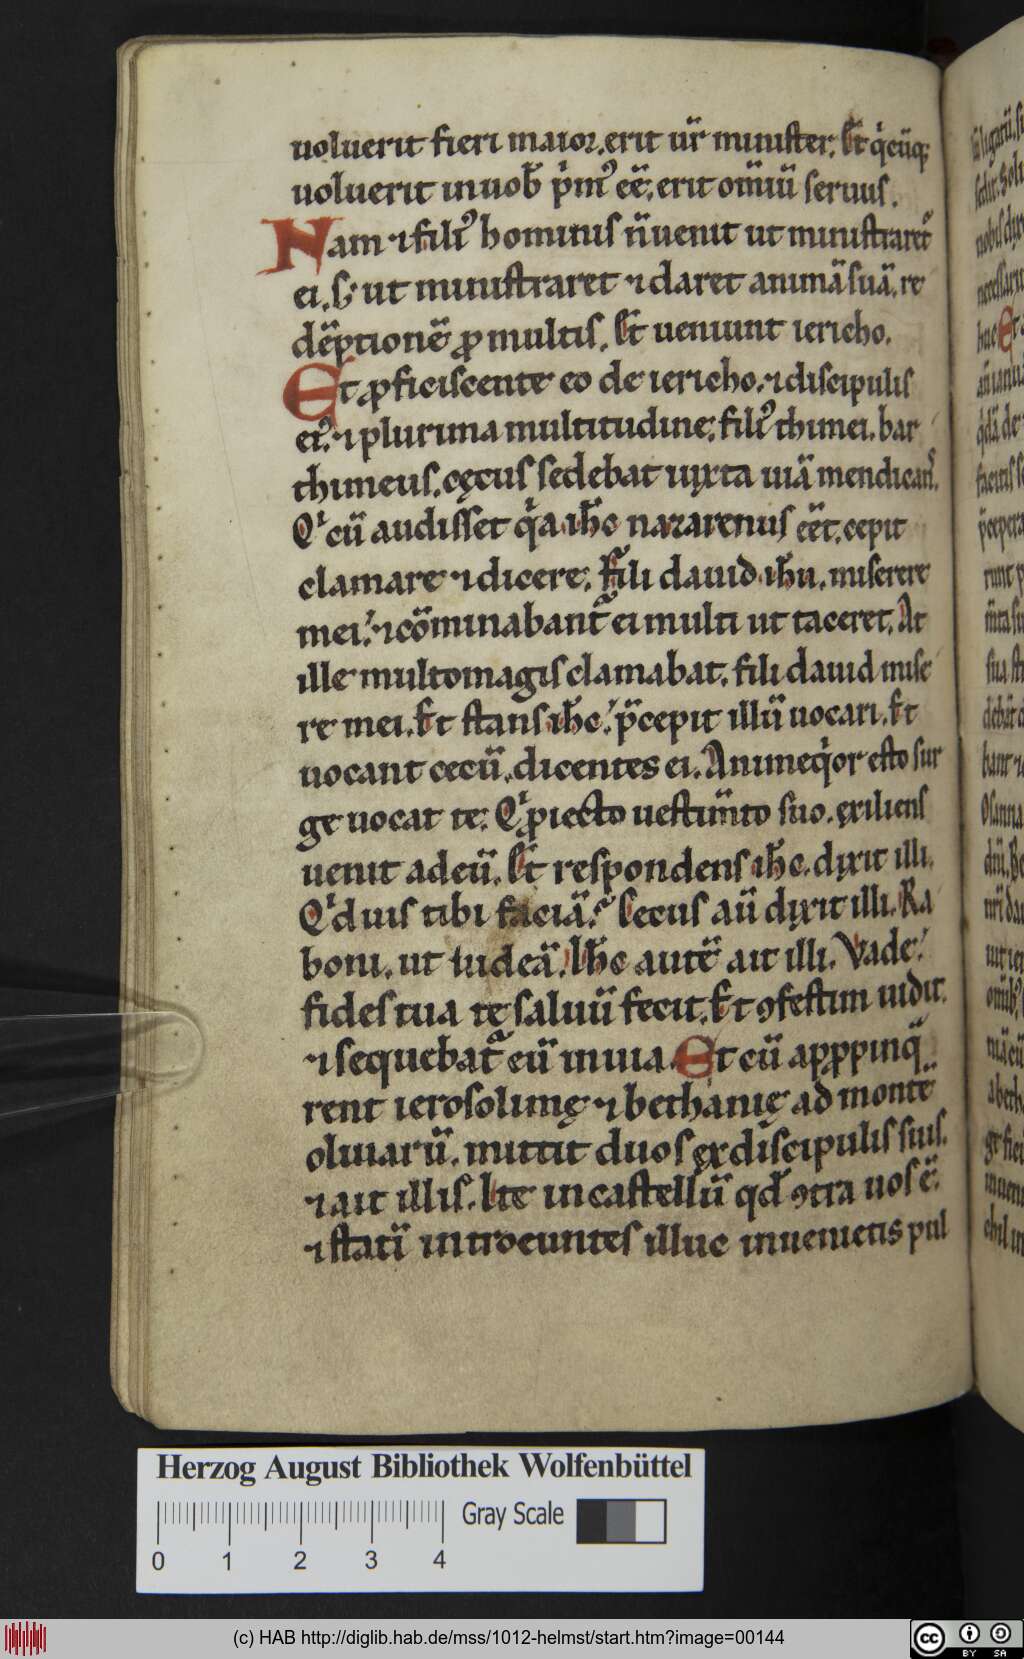 uoluerit fieri maior. erit ur̄ minister. Et q̇cūq;
uoluerit in uob̄ p̄mꝰ eē. erit om̄iū seruus.
Nam ⁊ filiꝰ hominis n̄ uenit ut ministraret᷑
ei. sꝫ ut ministraret ⁊ daret animā suā. re
dēptionē ꝓ multis. Et ueniunt iericho.
Et ꝓficiscente eo de iericho. ⁊ discipulis
eiꝰ. ⁊ plurima multitudine. filiꝰ thimei. bar
thimeus. cęcus sedebat iuxta uiā mendicans.
Qͥ cū audisset qͥa ih̄c nazarenus eēt. cepit
clamare ⁊ dicere. Fili dauid ih̄u. miserere
mei. ⁊ cōminabant᷑ ei multi ut taceret. At
ille multomagis clamabat. fili dauid mise
re mei. Et stans ih̄c. p̄cepit illū uocari. Et
uocant cecū. dicentes ei. Animeq̇or esto sur
ge uocat te. Qͥ ꝓiecto uestim̄to suo. exiliens
uenit ad eū. Et respondens ih̄c. dixit illi.
Qͥd uis tibi faciā? Cecus aū dixit illi. Ra
boni. ut uideā. Ih̄c autē ait illi. Vade.
fides tua te saluū fecit. Et ꝯfestim uidit.
⁊ sequebat᷑ eū in uia. Et cū apꝓpinq̄
rent ierosolimę ⁊ bethanię ad montē
oliuarū. mittit duos ex discipulis suis.
⁊ ait illis. Ite in castellū qd̄ ꝯtra uos ē.
⁊ statī introeuntes illuc inuenietis pul
Herzog August Bibliothek Wolfenbüttel
Gray Scale
0 1 2 3 4
(c) HAB http://diglib.hab.de/mss/1012-helmst/start.htm?image=00144
cc BY SA